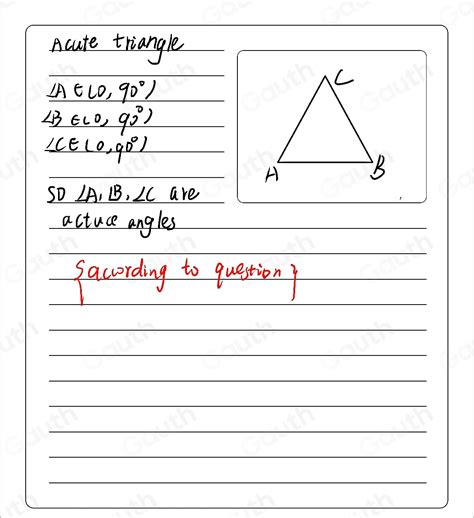 Acute triangle
∠A ∈ (0, 90°)
∠B ∈ (0, 90°)
∠C ∈ (0, 90°)
C
A
B
SO ∠A, ∠B, ∠C are
actuce angles
{acwording to question}
Gauth